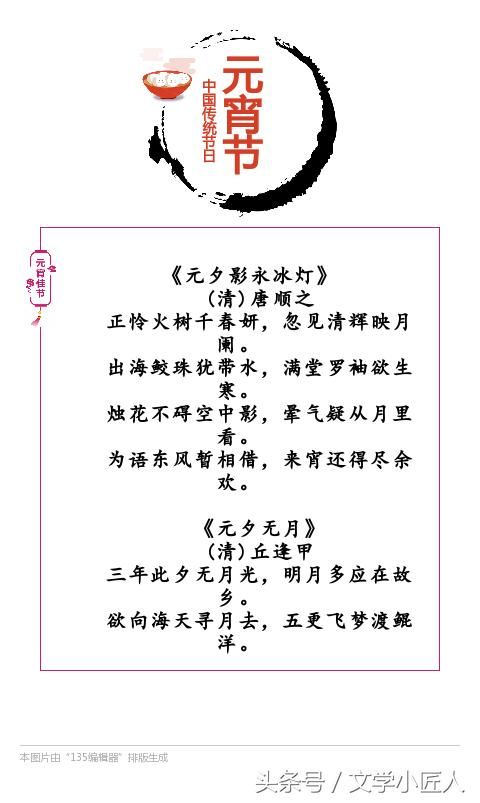 元宵节
中国传统节日
元宵佳节
《元夕影永冰灯》
(清)唐顺之
正怜火树千春妍，忽见清辉映月
阑。
出海鲛珠犹带水，满堂罗袖欲生
寒。
烛花不碍空中影，晕气疑从月里
看。
为语东风暂相借，来宵还得尽余
欢。
《元夕无月》
(清)丘逢甲
三年此夕无月光，明月多应在故
乡。
欲向海天寻月去，五更飞梦渡鲲
洋。
本图片由“135编辑器”排版生成
头条号 / 文学小匠人